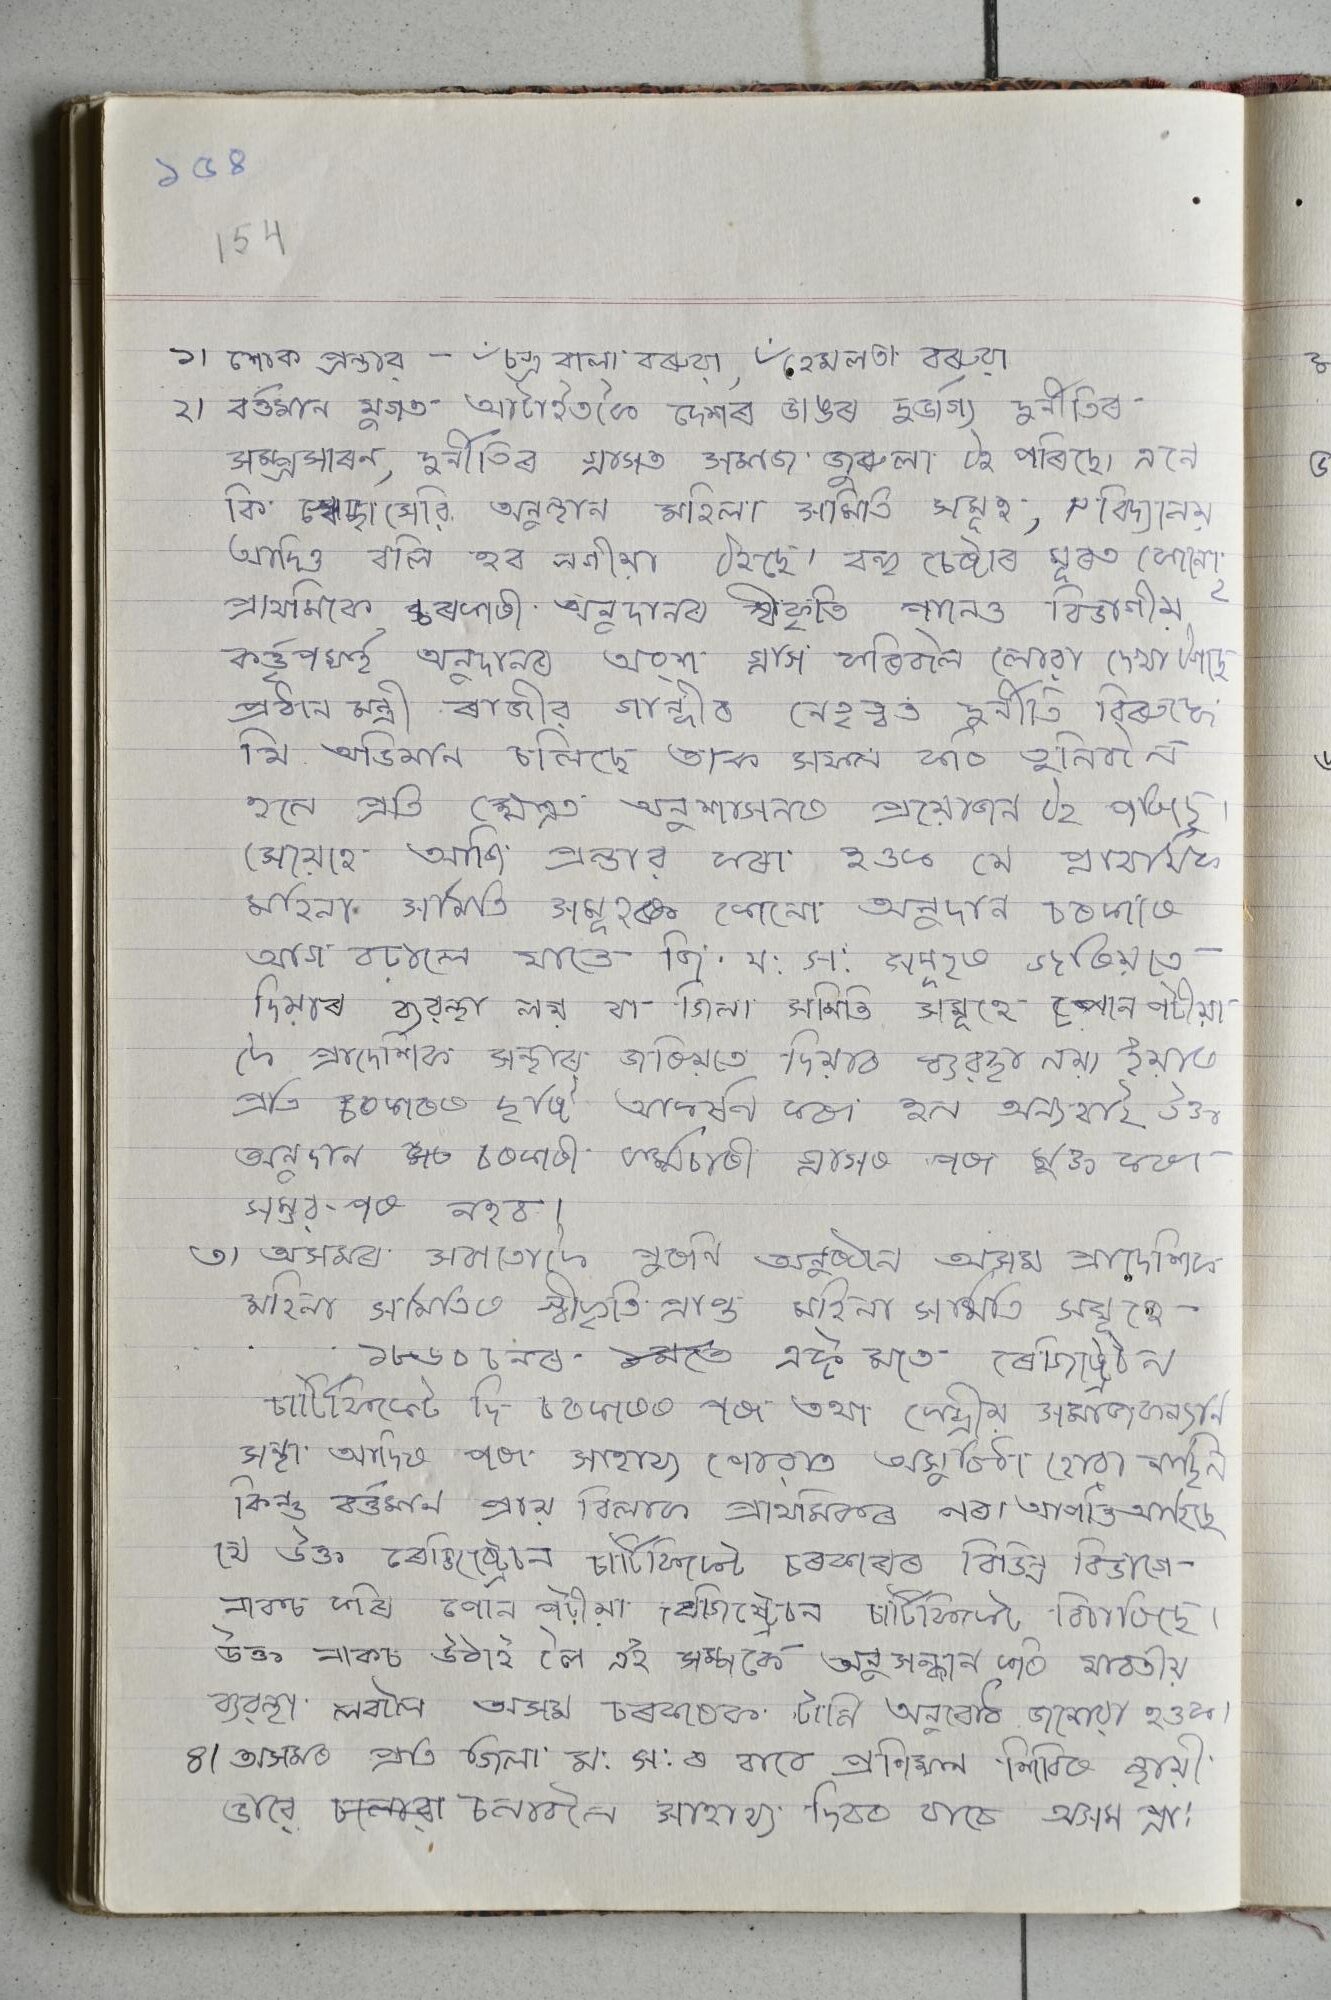 ১৫৪
154
১। শোক প্ৰস্তাৱ - ঁচন্দ্ৰ বালা বৰুৱা, ঁহেমলতা বৰুৱা
২। বৰ্ত্তমান যুগত আটাইতকৈ দেশৰ ডাঙৰ দুৰ্ভাগ্য দুৰ্নীতিৰ
সম্প্ৰসাৰন, দুৰ্নীতিৰ গ্ৰাসত সমাজ জুৰুলা হৈ পৰিছে। এনে
কি স্বেচ্ছাসেৱি অনুস্থান মহিলা সমিতি সমূহ, বিদ্যালয়
আদিও বলি হব লগীয়া হৈছে। বহু চেষ্টাৰ মূৰত কোনো
প্ৰাথমিকে চৰকাৰী অনুদানৰ স্বীকৃতি পালেও বিভাগীয়
কৰ্ত্তৃপক্ষই অনুদানৰ অংশ গ্ৰাস কৰিবলৈ লোৱা দেখা গৈছে
প্ৰধান মন্ত্ৰী ৰাজীৱ গান্ধীৰ নেতৃত্বত দুৰ্নীতি বিৰুদ্ধে
যি অভিযান চলিছে তাক সফল কৰি তুলিবলৈ
হলে প্ৰতি ক্ষেত্ৰত অনুশাসনৰ প্ৰয়োজন হৈ পৰিছে।
সেয়েহে আজি প্ৰস্তাৱ কৰা হওক যে প্ৰাথমিক
মহিলা সমিতি সমূহক কোনো অনুদান চৰকাৰে
আগ বঢ়ালে যাতে জি. ম. স. সমূহৰ জৰিয়তে
দিয়াৰ ব্যৱস্থা লয় বা জিলা সমিতি সমূহে পোন পটীয়া
কৈ প্ৰাদেশিক সন্থাৰ জৰিয়তে দিয়াৰ ব্যৱস্থা লয়। ইয়াৰ
প্ৰতি চৰকাৰৰ দৃষ্টি আকৰ্ষন কৰা হল অন্যথাই উক্ত
অনুদান চৰকাৰী কৰ্ম্মচাৰী গ্ৰাসৰ পৰা মুক্ত কৰা
সম্ভৱ পৰ নহব।
৩। অসমৰ সবাতোকৈ পুৰণি অনুষ্ঠান অসম প্ৰাদেশিক
মহিলা সমিতিৰ স্বীকৃতি প্ৰাপ্ত মহিলা সমিতি সমূহে
১৮৬০ চনৰ এক্ট মতে ৰেজিষ্ট্ৰেচন
চাৰ্টিফিকেট দি চৰকাৰৰ পৰা তথা কেন্দ্ৰীয় সমাজকল্যান
সন্থা আদিৰ পৰা সাহায্য পোৱাত অসুবিধা হোৱা নাছিল
কিন্তু বৰ্ত্তমান প্ৰায় বিলাক প্ৰাথমিকৰ পৰা আপত্তি আহিছে
যে উক্ত ৰেজিষ্ট্ৰেচন চাৰ্টিফিকেট চৰকাৰৰ বিভিন্ন বিভাগে
নাকচ কৰি পোন পটীয়া ৰেজিষ্ট্ৰেচন চাৰ্টিফিকেট বিচাৰিছে।
উক্ত নাকচ উঠাই লৈ এই সম্পৰ্কে অনুসন্ধান কৰি যাবতীয়
ব্যৱস্থা লবলৈ অসম চৰকাৰক টানি অনুৰোধ জনোৱা হওক।
৪। অসমৰ প্ৰতি জিলা ম. স. ৰ বাবে প্ৰশিক্ষন শিবিৰ স্থায়ী
ভাৱে চলাবলৈ সাহায্য দিবৰ বাবে অসম প্ৰা.